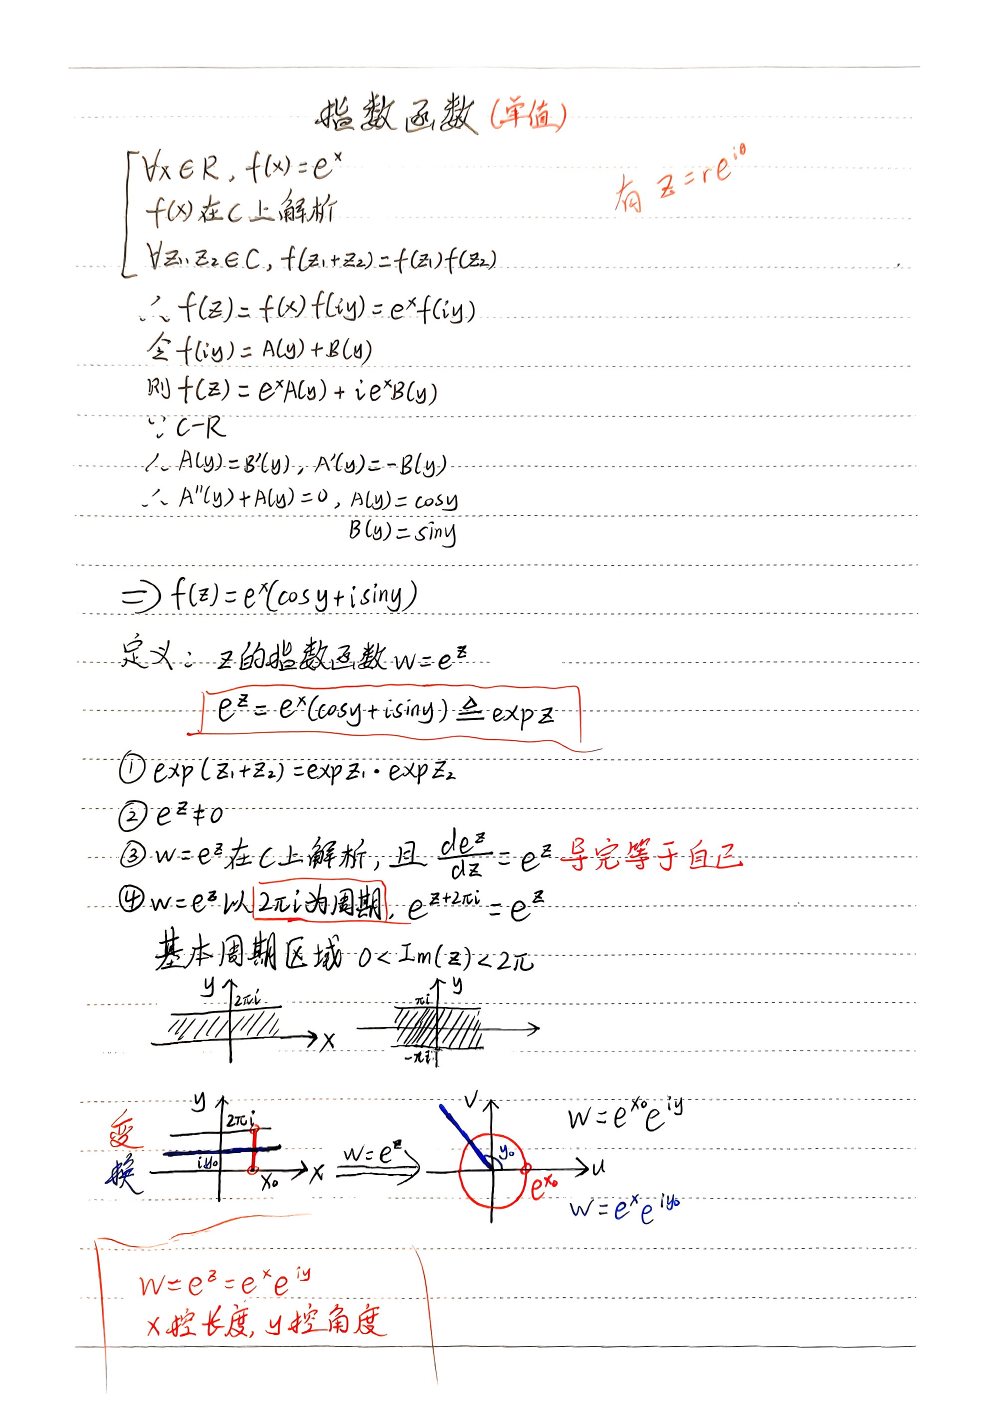 指数函数(单值)
∀x∈R, f(x)=eˣ
有 z=re^{iθ}
f(x)在C上解析
∀z₁,z₂∈C, f(z₁+z₂)=f(z₁)f(z₂)
∴ f(z)=f(x)f(iy)=eˣf(iy)
令 f(iy)=A(y)+B(y)
则 f(z)=eˣA(y)+ieˣB(y)
∵ C-R
∴ A(y)=B'(y), A'(y)=-B(y)
∴ A''(y)+A(y)=0, A(y)=cosy
B(y)=siny
⇒ f(z)=eˣ(cosy+isiny)
定义: z的指数函数 w=e^z
e^z=eˣ(cosy+isiny)≜expz
① exp(z₁+z₂)=expz₁·expz₂
② e^z≠0
③ w=e^z在C上解析,且 de^z/dz=e^z 导完等于自己
④ w=e^z以2πi为周期, e^{z+2πi}=e^z
基本周期区域 0<Im(z)<2π
y 2πi x
y πi -πi
变换
y 2πi iy₀ x₀ x
w=e^z
v y₀ u e^{x₀}
w=e^{x₀}e^{iy}
w=eˣe^{iy₀}
w=e^z=eˣe^{iy}
x控长度,y控角度